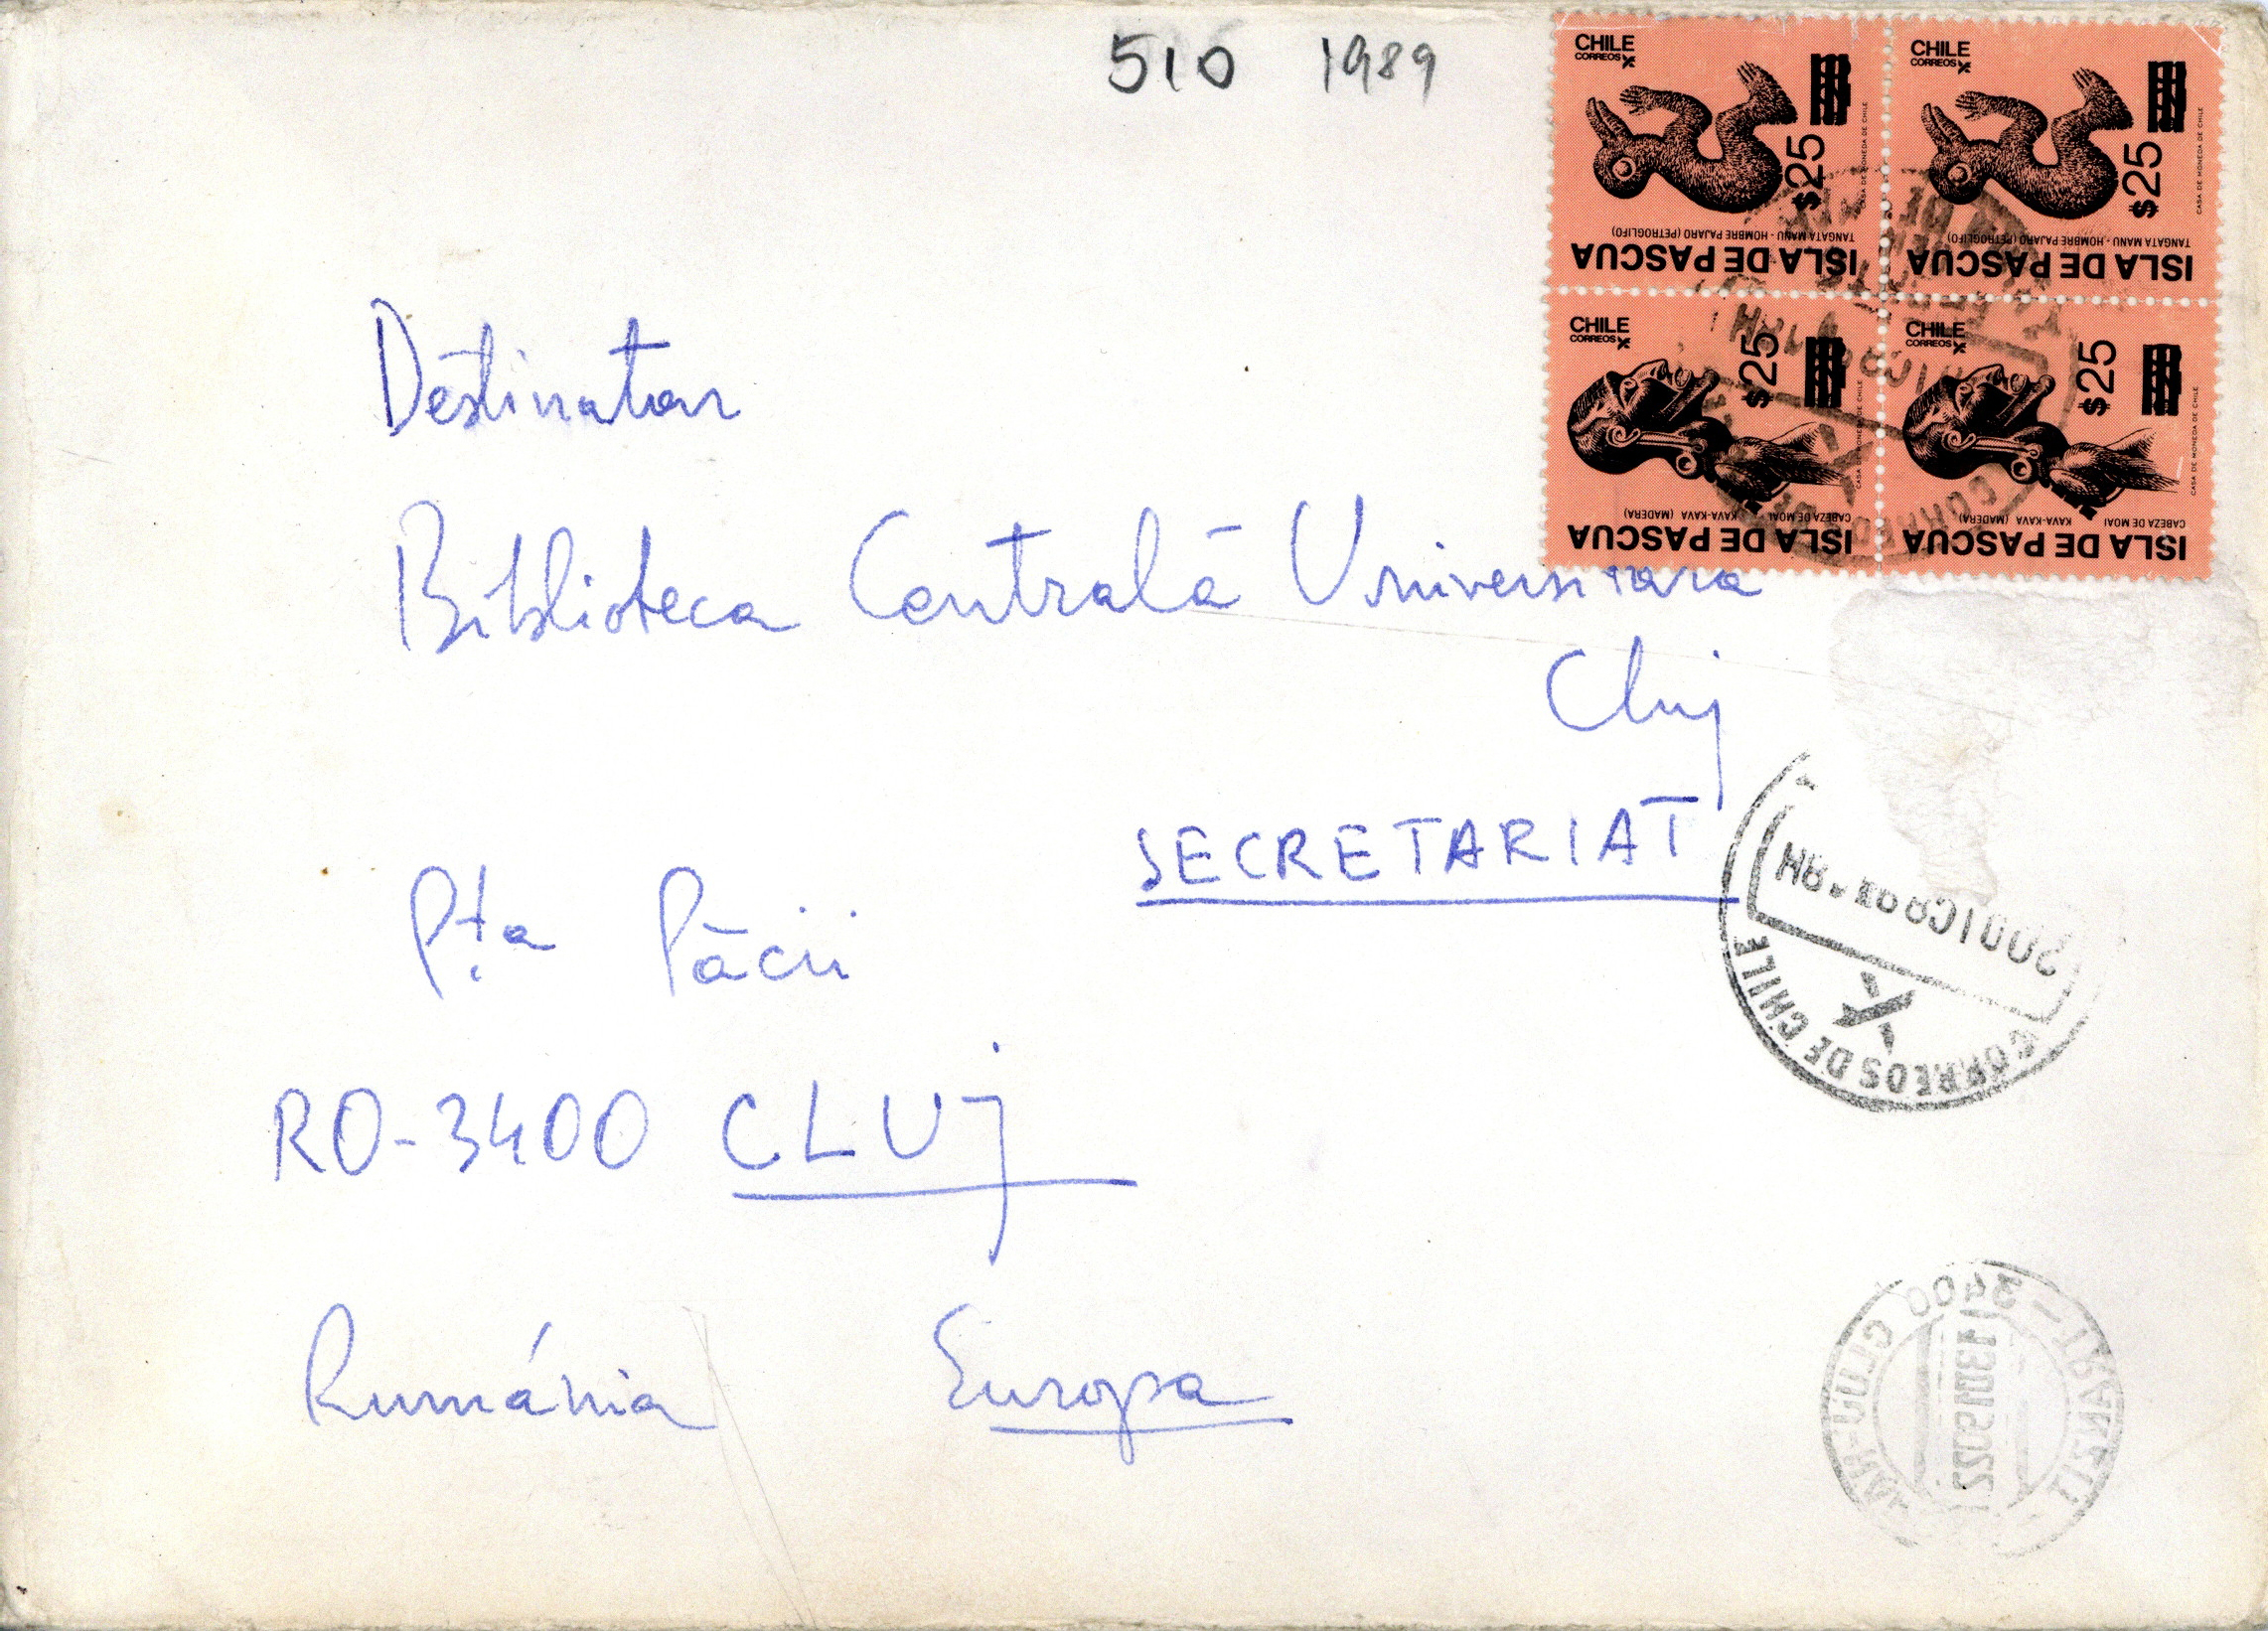 510 1989
CHILE
CORREOS
$25
CASA DE MONEDA DE CHILE
TANGATA MANU - HOMBRE PAJARO (PETROGLIFO)
ISLA DE PASCUA
CHILE
CORREOS
$25
CASA DE MONEDA DE CHILE
TANGATA MANU - HOMBRE PAJARO (PETROGLIFO)
ISLA DE PASCUA
CHILE
CORREOS
$25
CASA DE MONEDA DE CHILE
CABEZA DE MOAI KAVA-KAVA (MADERA)
ISLA DE PASCUA
CHILE
CORREOS
$25
CASA DE MONEDA DE CHILE
CABEZA DE MOAI KAVA-KAVA (MADERA)
ISLA DE PASCUA
Destinatar
Biblioteca Centrală Universitara
Cluj
SECRETARIAT
Pța Păcii
RO-3400 CLUj
Rumánia Europa
CORREOS DE CHILE
3400 CLUJ